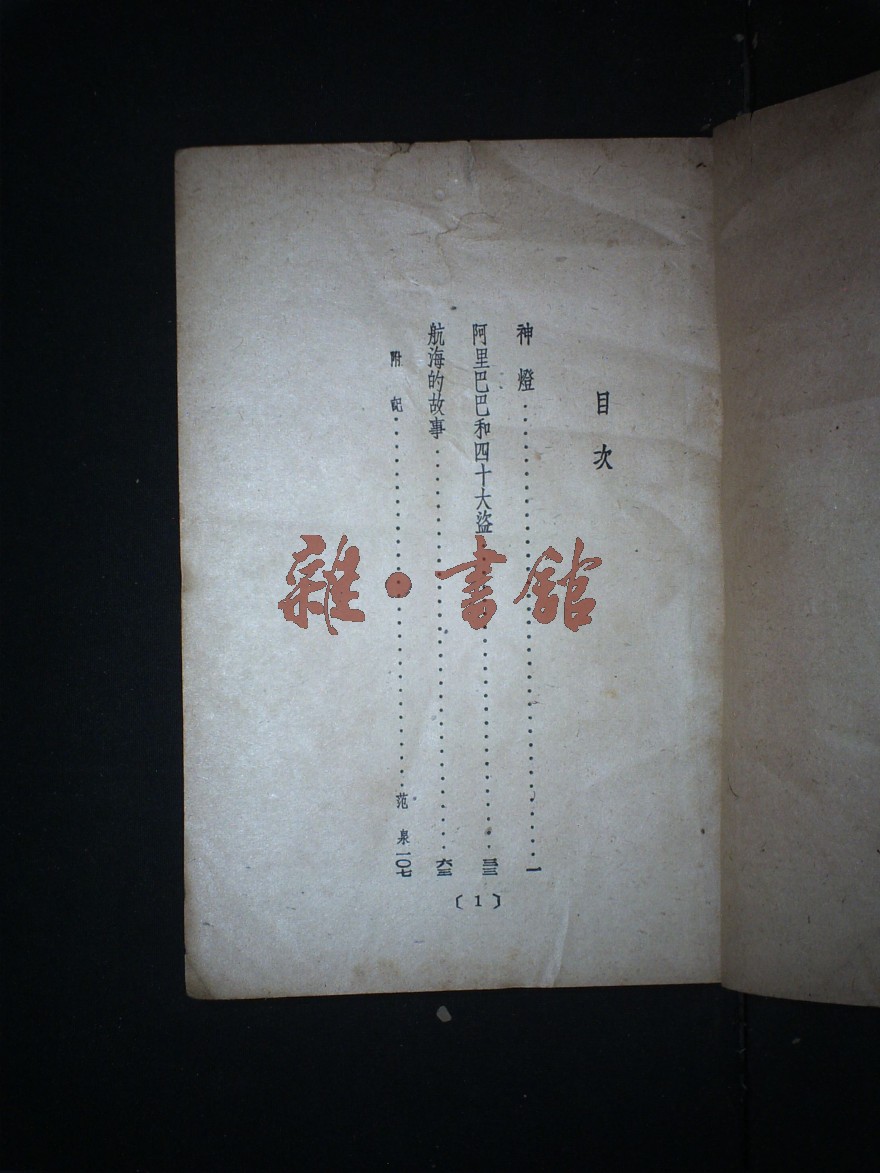 目次
神燈……一
阿里巴巴和四十大盜……三三
航海的故事……六三
附記……范泉一〇七
〔1〕
雜·書館